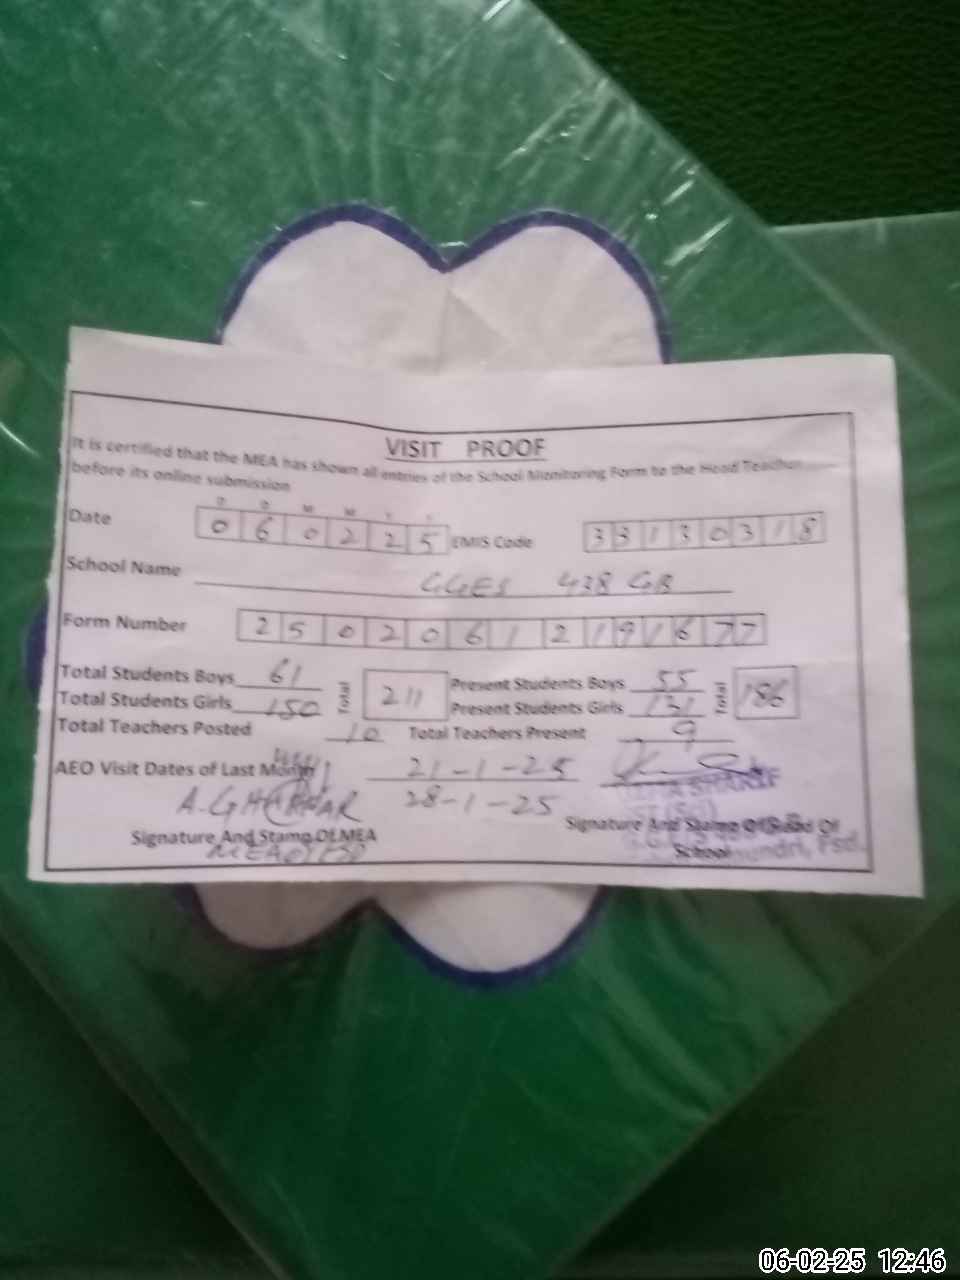 VISIT PROOF
It is certified that the MEA has shown all entries of the School Monitoring Form to the Head Teacher
before its online submission
D D M M Y Y
Date 0 6 0 2 2 5 EMIS Code 3 3 1 3 0 3 1 8
School Name GGES 428 GB
Form Number 2 5 0 2 0 6 1 2 1 9 1 6 7 7
Total Students Boys 61 Total 211 Present Students Boys 55 Total 186
Total Students Girls 150 Present Students Girls 131
Total Teachers Posted 10 Total Teachers Present 9
AEO Visit Dates of Last Month 21-1-25
A. GHAFFAR 28-1-25
SHARIF
Signature And Stamp Of MEA Signature And Stamp Of Head Of
School
06-02-25 12:46